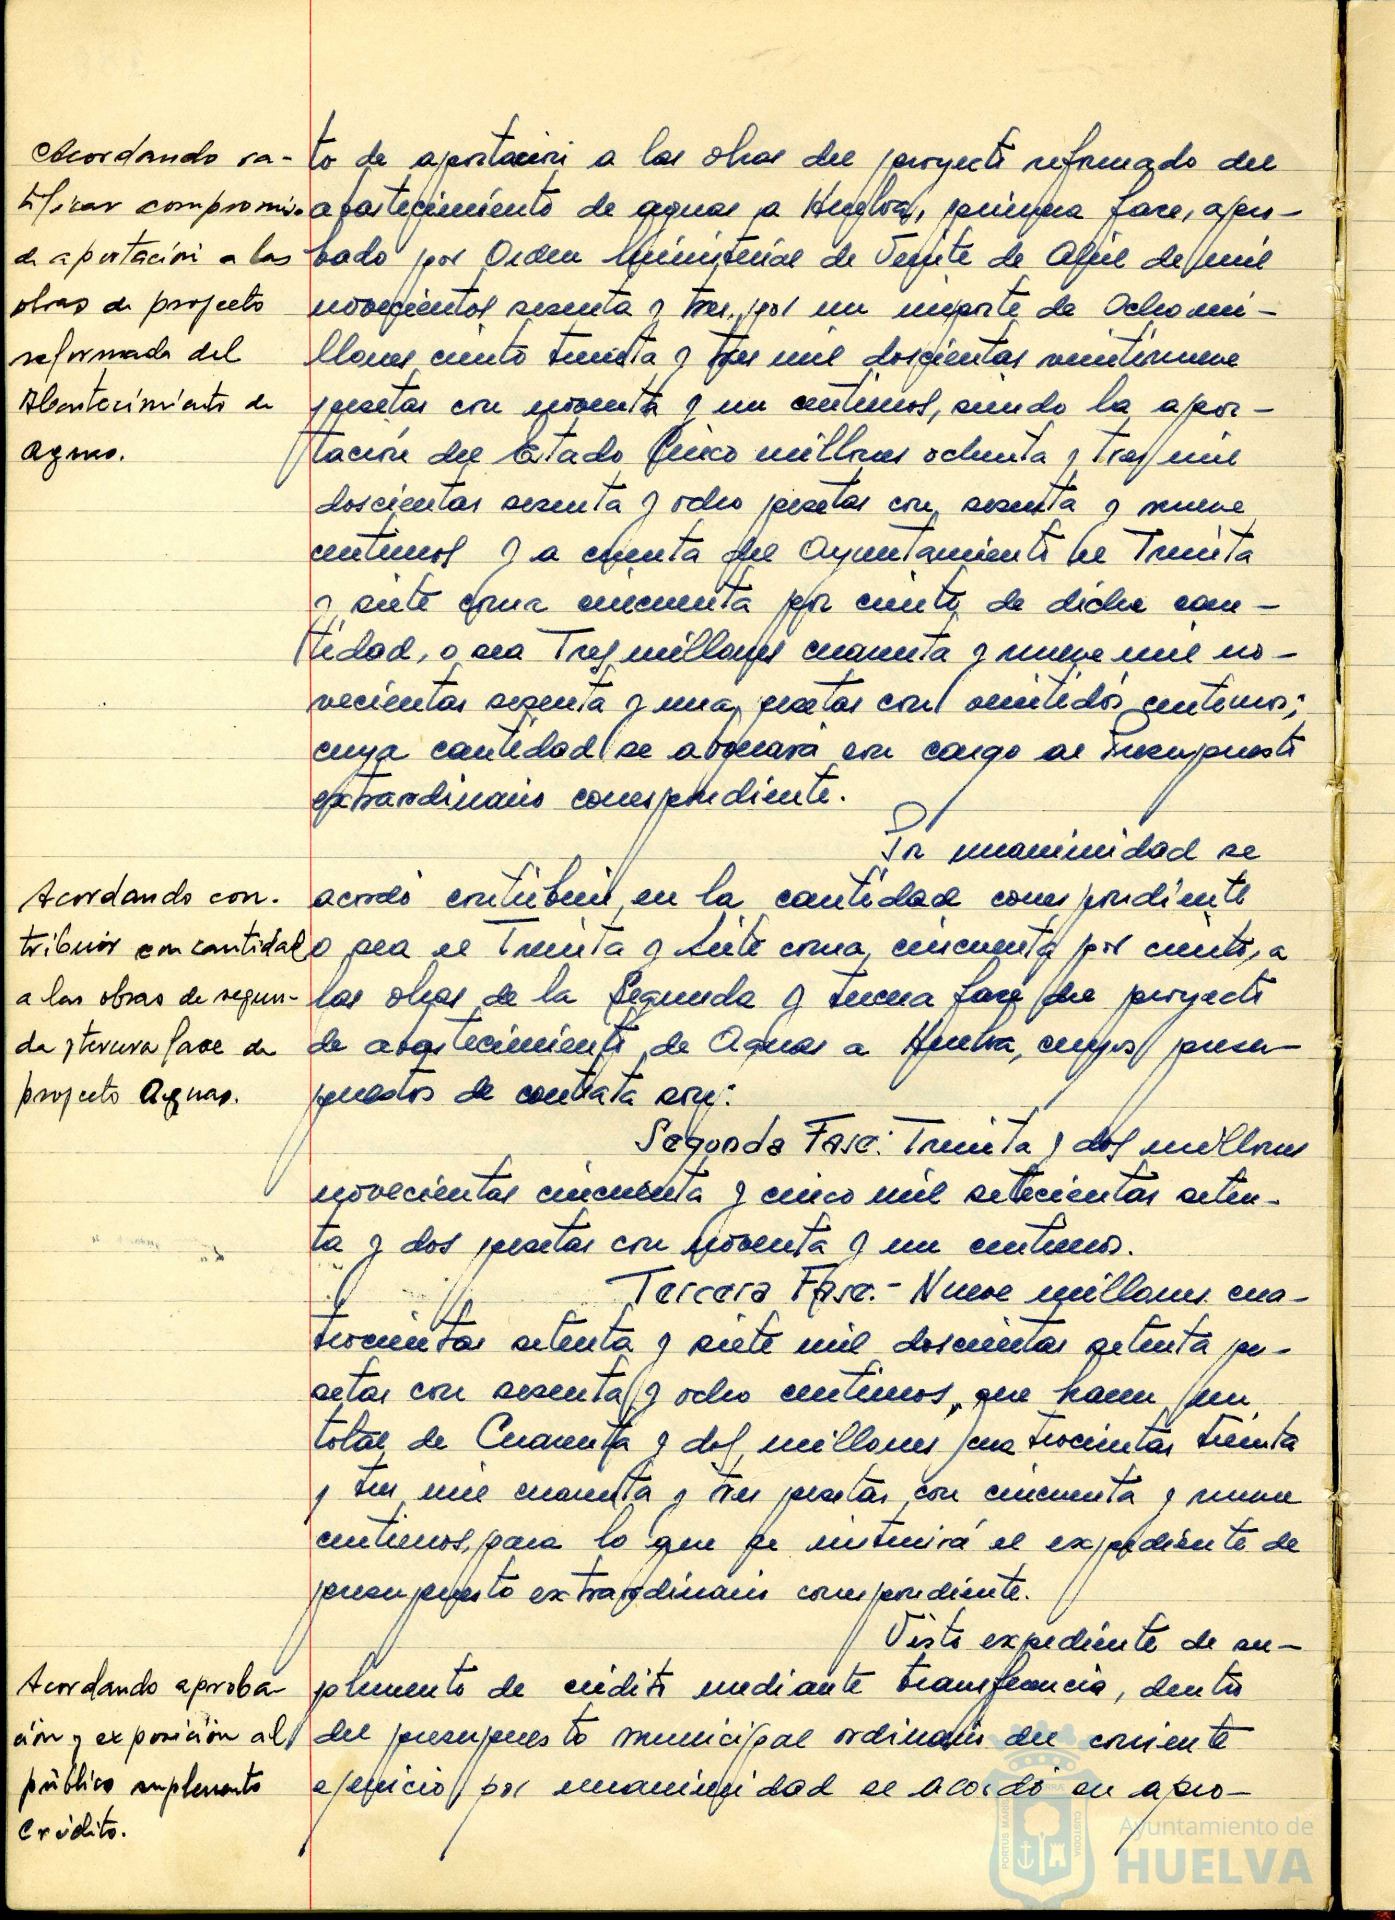 Acordando ra-
tificar compromiso
de aportación a las
obras de proyecto
reformado del
Abastecimiento de
aguas.
to de aportación a las obras del proyecto reformado del
abastecimiento de aguas a Huelva, primera fase, apro-
bado por Orden Ministerial de Veinte de Abril de mil
novecientos sesenta y tres, por un importe de Ocho mi-
llones ciento treinta y tres mil doscientas veintinueve
pesetas con noventa y un centimos, siendo la apor-
tación del Estado Cinco millones ochenta y tres mil
doscientas sesenta y ocho pesetas con sesenta y nueve
centimos y a cuenta del Ayuntamiento el Treinta
y siete coma cincuenta por ciento de dicha can-
tidad, o sea Tres millones cuarenta y nueve mil no-
vecientas sesenta y una pesetas con veintidós centimos;
cuya cantidad se abonará con cargo al Presupuesto
extraordinario correspondiente.
Acordando con-
tribuir con cantidad
a las obras de segun-
da y tercera fase de
proyecto Aguas.
Por unanimidad se
acordó contribuir, en la cantidad correspondiente
o sea el Treinta y Siete coma cincuenta por ciento, a
las obras de la Segunda y tercera fase del proyecto
de abastecimiento de Aguas a Huelva, cuyos presu-
puestos de contrata son:
Segunda Fase: Treinta y dos millones
novecientas cincuenta y cinco mil setecientas seten-
ta y dos pesetas con noventa y un centimos.
Tercera Fase.- Nueve millones cua-
trocientas setenta y siete mil doscientas setenta pe-
setas con sesenta y ocho centimos, que hacen un
total de Cuarenta y dos millones cuatrocientas treinta
y tres mil cuarenta y tres pesetas con cincuenta y nueve
centimos, para lo que se instruirá el expediente de
presupuesto extraordinario correspondiente.
Acordando aproba-
ción y exposición al
público suplemento
Crédito.
Visto expediente de su-
plemento de crédito mediante transferencia, dentro
del presupuesto municipal ordinario del corriente
ejercicio por unanimidad se acordó su apro-
PORTUS MARIS
CUSTODIA
Ayuntamiento de
HUELVA